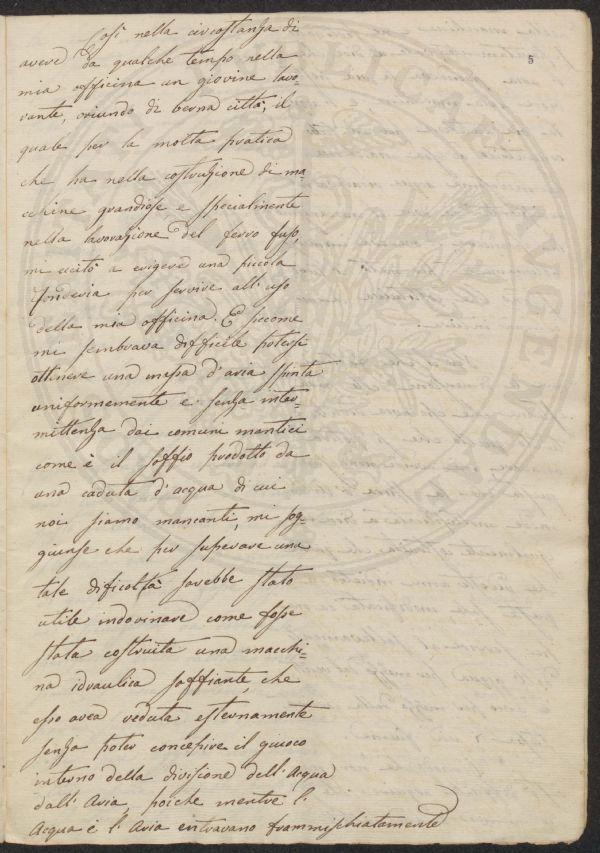 5
Così nella circostanza di
avere da qualche tempo nella
mia officina un giovine lavo,
rante, oriundo di berna città, il
quale per la molta pratica
che ha nella costruzione di ma=
cchine grandiose e specialmente
nella lavorazione del ferro fuso,
mi eccitò a erigere una piccola
fonderia per servire all'uso
della mia officina. E siccome
mi sembrava difficile potersi
ottenere una massa d'aria spinta
uniformemente e senza inter=
mittenza dai comuni mantici
come è il soffio prodotto da
una caduta d'acqua di cui
noi siamo mancanti, mi sog=
giunse che per superare una
tale dificoltà sarebbe stato
utile indovinare come fosse
stata costruita una macchi=
na idraulica soffiante, che
esso avea veduta esternamente
senza poter concepire il giuoco
interno della divisione dell'Acqua
dall'Aria, poiche mentre l'
Acqua e l'Aria entravano frammischiatamente